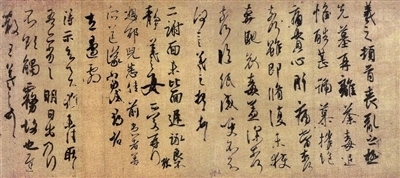 羲之頓首喪亂之極
先墓再離荼毒追
惟酷甚號慕摧絕
痛貫心肝痛當奈何
奈何雖即脩復未獲
奔馳哀毒益深奈何
奈何臨紙感哽不知
何言羲之頓首頓首
二謝面未比面遲詠良不
靜羲之女愛再拜
想邵兒悉佳前患者善
所送議當試尋省
左邊劇
得示知足下猶未佳耿
耿吾亦劣劣明日出乃行
不欲觸霧故也遲
散王羲之頓首